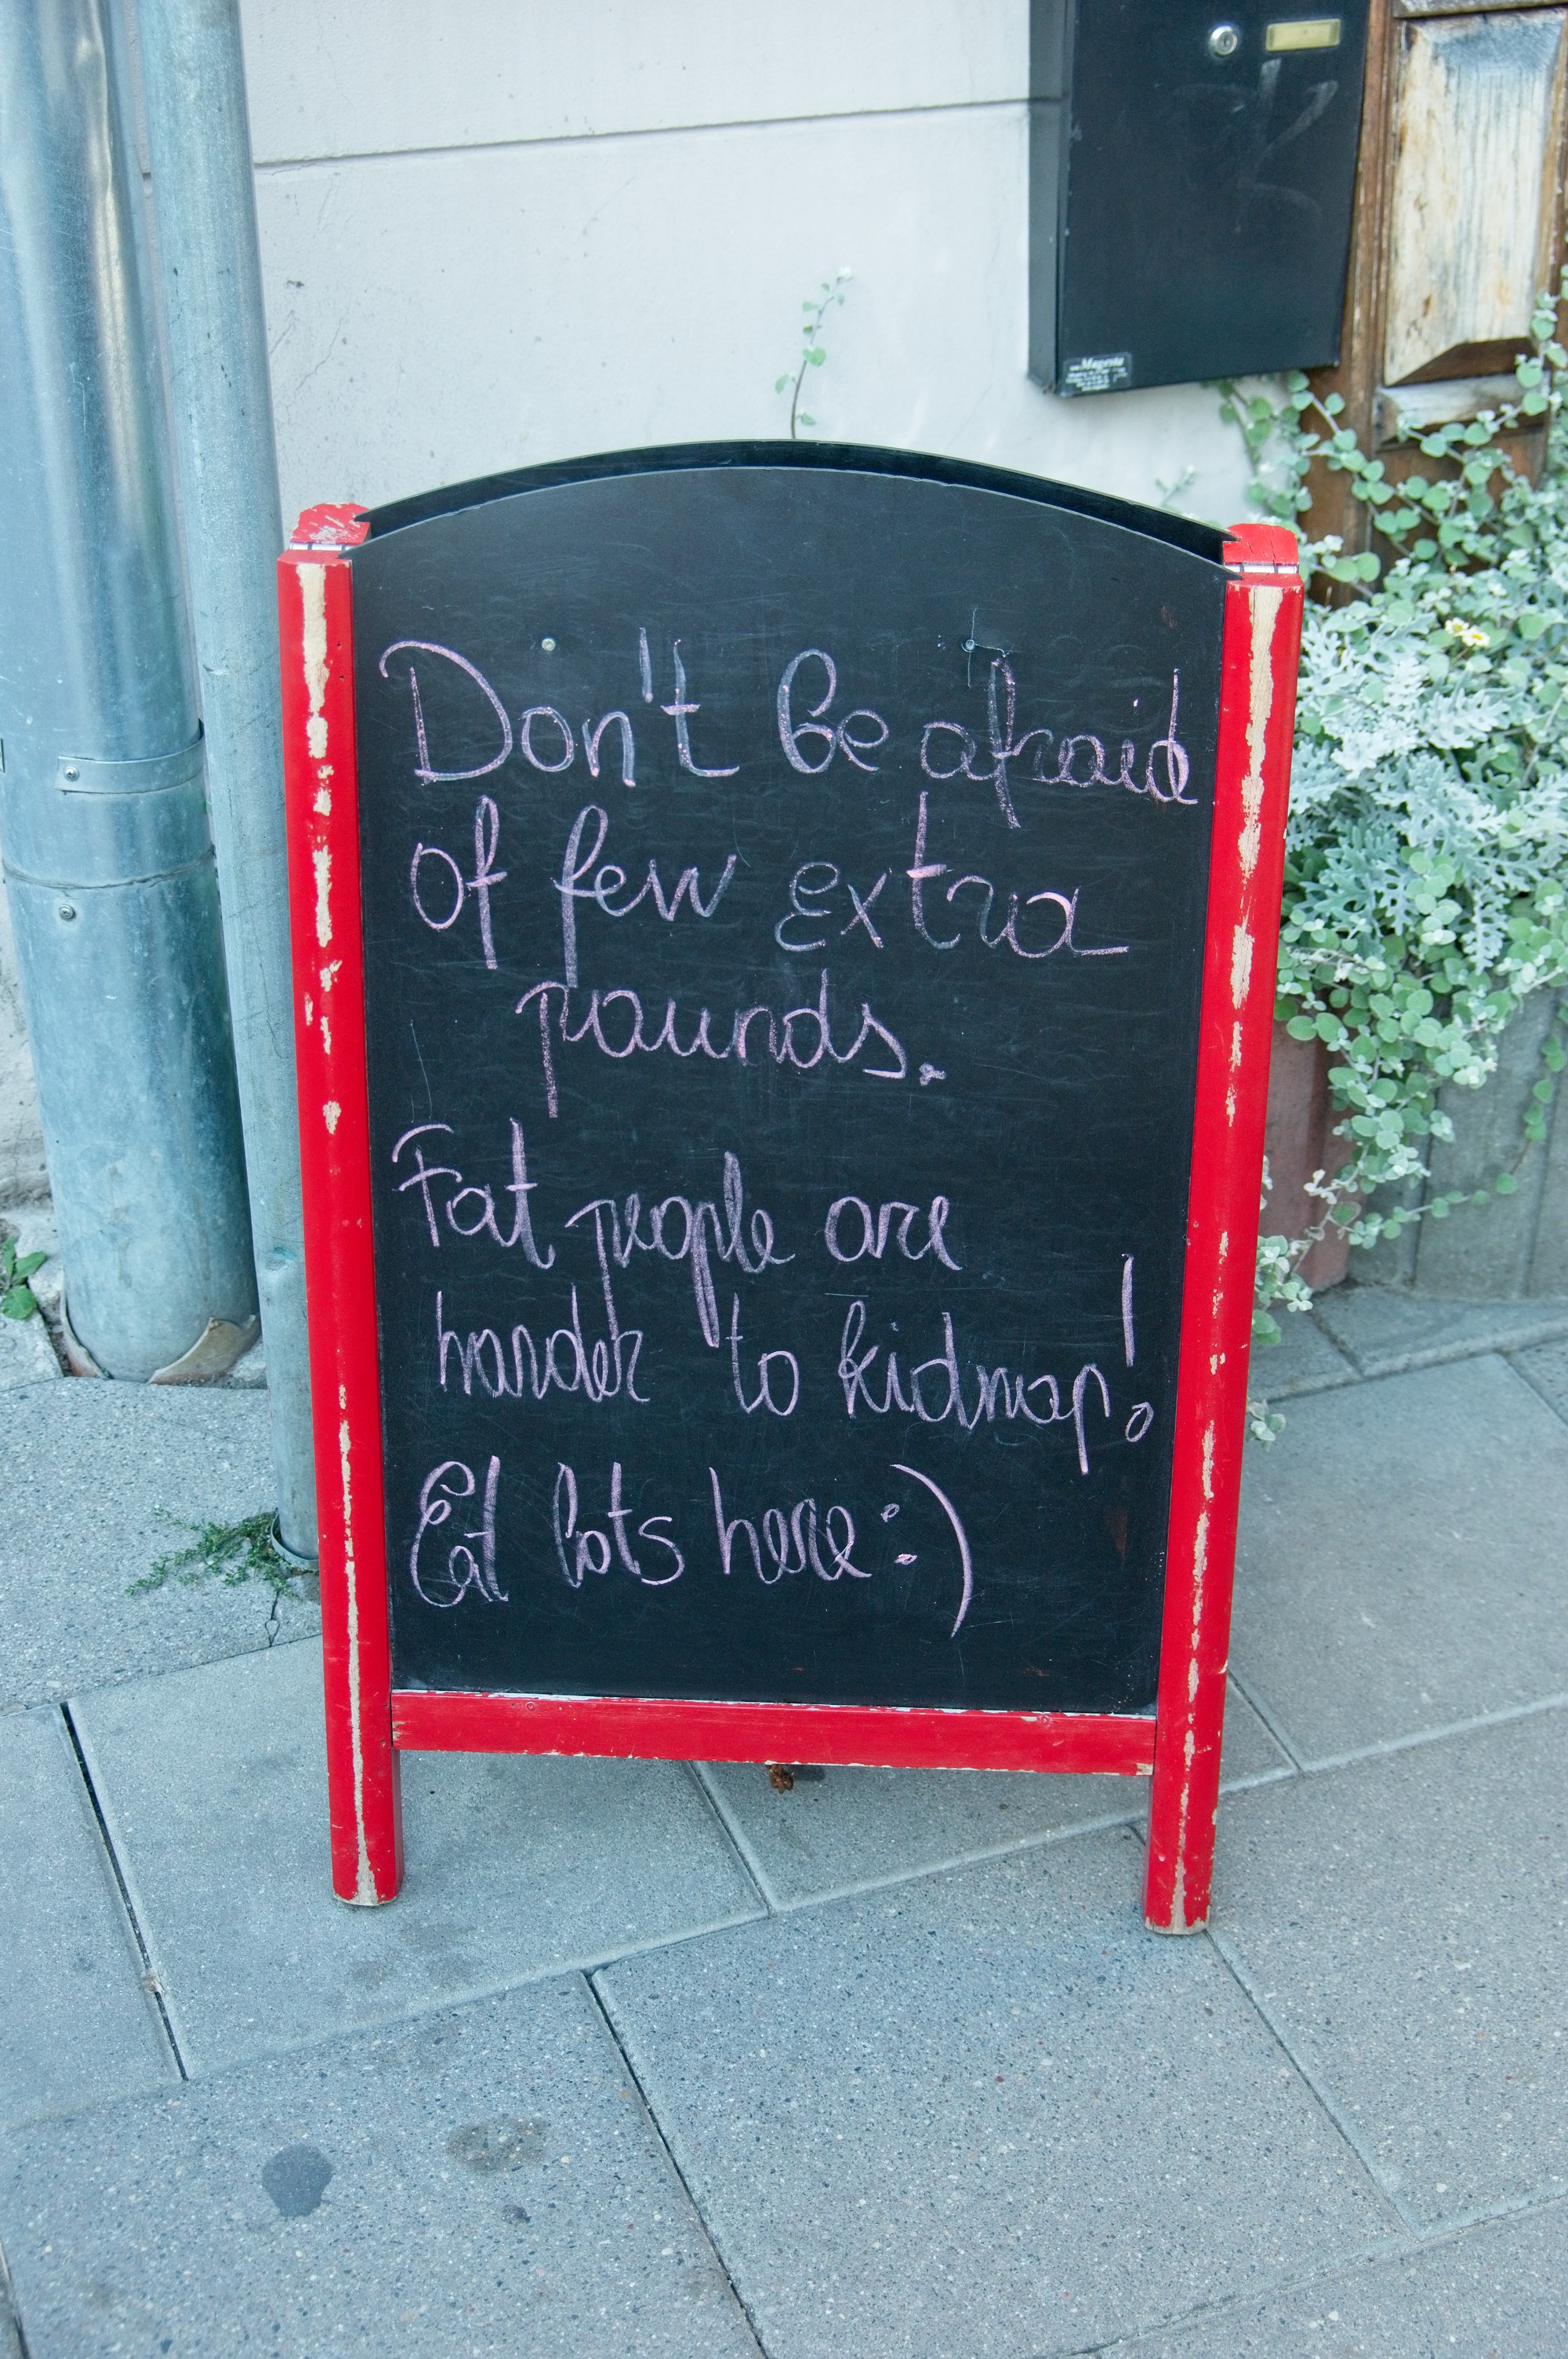 Don't be afraid
of few extra
pounds.
Fat people are
harder to kidnap!
Eat lots here :)
Magenta